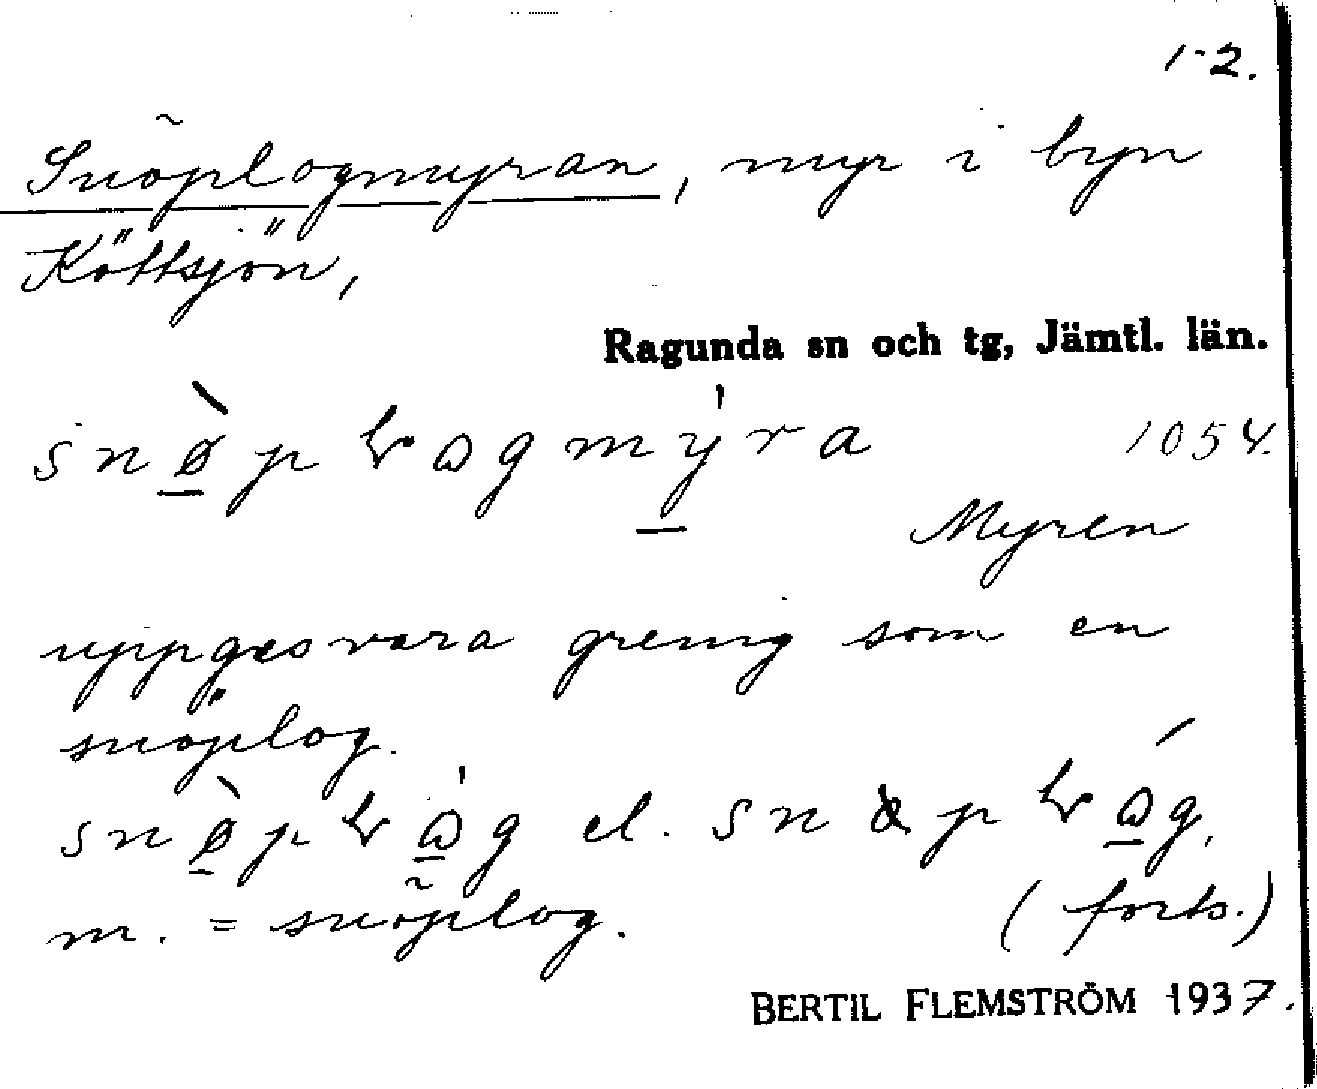 1-2.
Snöplogmyran, myr i byn
Köttsjön,
Ragunda sn och tg, Jämtl. län.
1054.
Myren
uppges vara grenig som en
snöplog.
el.
m. = snöplog. (forts.)
BERTIL FLEMSTRÖM 1937.